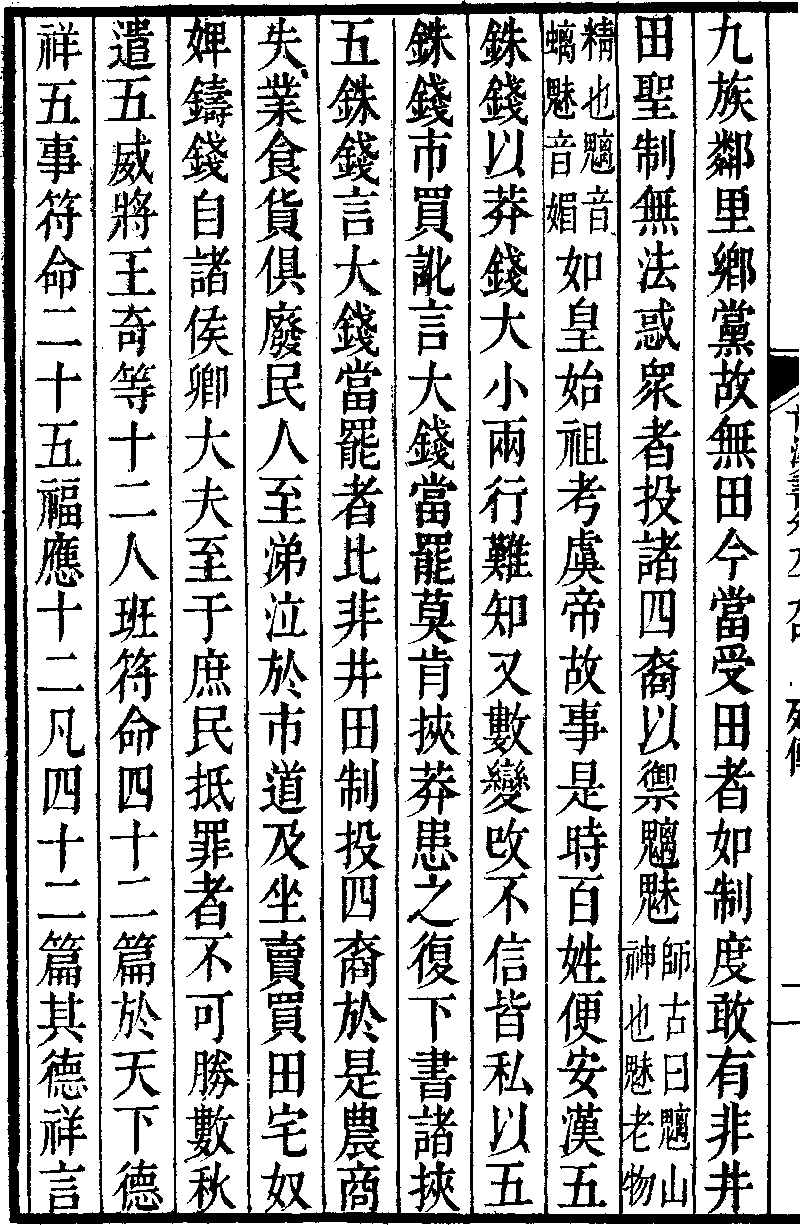 九族鄰里鄉黨故無田今當受田者如制度敢有非井
田聖制無法惑衆者投諸四裔以禦魑魅師古曰魑山神也魅老物
精也魑音螭魅音媚如皇始祖考虞帝故事是時百姓便安漢五
銖錢以莽錢大小兩行難知又數變改不信皆私以五
銖錢市買訛言大錢當罷莫肯挾莽患之復下書諸挾
五銖錢言大錢當罷者比非井田制投四裔於是農商
失業食貨俱廢民人至涕泣於市道及坐賣買田宅奴
婢鑄錢自諸侯卿大夫至于庶民抵罪者不可勝數秋
遣五威將王奇等十二人班符命四十二篇於天下德
祥五事符命二十五福應十二凡四十二篇其德祥言